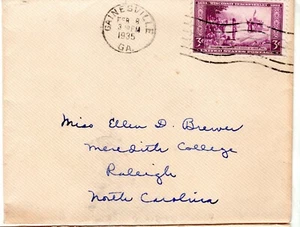 GAINESVILLE
FEB 8
3 PM
1935
GA.
3¢
Miss Ellen D. Brewer
Meredith College
Raleigh
North Carolina